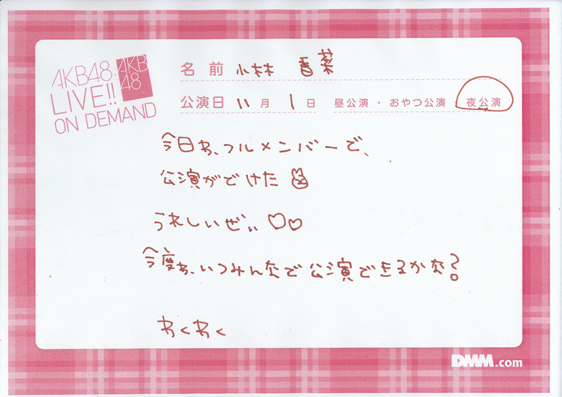 AKB48
LIVE!!
ON DEMAND
AKB
48
名前 小林 香菜
公演日 11月 1日 昼公演・おやつ公演 夜公演
今日わ、フルメンバーで、
公演ができた
うれしいぜぃ♡♡
今度わ、いつみんなで公演できるかな?
わくわく
DMM.com